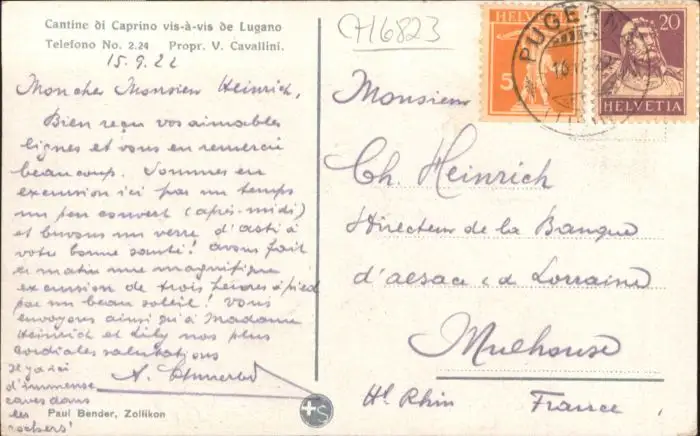 Cantine di Caprino vis-à-vis de Lugano
Telefono No. 2.24 Propr. V. Cavallini.
15.9.22
Mon cher Monsieur Heinrich,
Bien reçu vos aimables
lignes et vous en remercie
beaucoup. Sommes en
excursion ici par un temps
un peu couvert (après-midi)
et buvons un verre d'asti à
votre bonne santé! avons fait
ce matin une magnifique
excursion de trois heures à pied
par un beau soleil! Vous
envoyons ainsi qu'à Madame
Heinrich et Lily nos plus
cordiales salutations
A.
Il y a ici
d'immenses
caves dans
les
rochers!
Paul Bender, Zollikon
CH6823
HELVETIA
5
20
HELVETIA
Monsieur
Ch. Heinrich
Directeur de la Banque
d'alsace & d Lorraine
Mulhouse
Ht. Rhin France